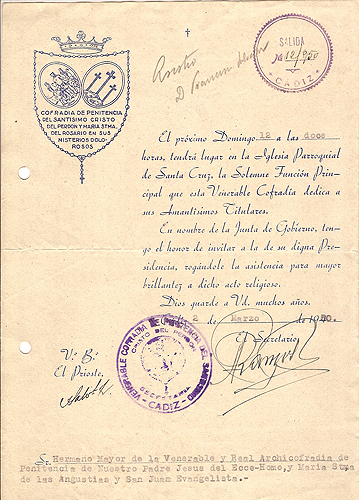 ✝
COFRADIA DE PENITENCIA
DEL SANTISIMO CRISTO
DEL PERDON Y MARIA STMA.
DEL ROSARIO EN SUS
MISTERIOS DOLO-
ROSOS
SALIDA
Nº 12/950
CADIZ
D
El próximo Domingo 12 a las doce
horas, tendrá lugar en la Iglesia Parroquial
de Santa Cruz, la Solemne Función Prin-
cipal que esta Venerable Cofradía dedica a
sus Amantísimos Titulares.
En nombre de la Junta de Gobierno, ten-
go el honor de invitar a la de su digna Pre-
sidencia, rogándole la asistencia para mayor
brillantez a dicho acto religioso.
Dios guarde a Vd. muchos años.
2 de Marzo de 1950.
El Secretario,
V.º B.º
El Prioste,
VENERABLE COFRADIA DE PENITENCIA DEL SANTISIMO
CRISTO DEL PERDON
SECRETARIA
CADIZ
Sr. Hermano Mayor de la Venerable y Real Archicofradia de
Penitencia de Nuestro Padre Jesus del Ecce-Homo, y Maria Stma
de las Angustias y San Juan Evangelista.-